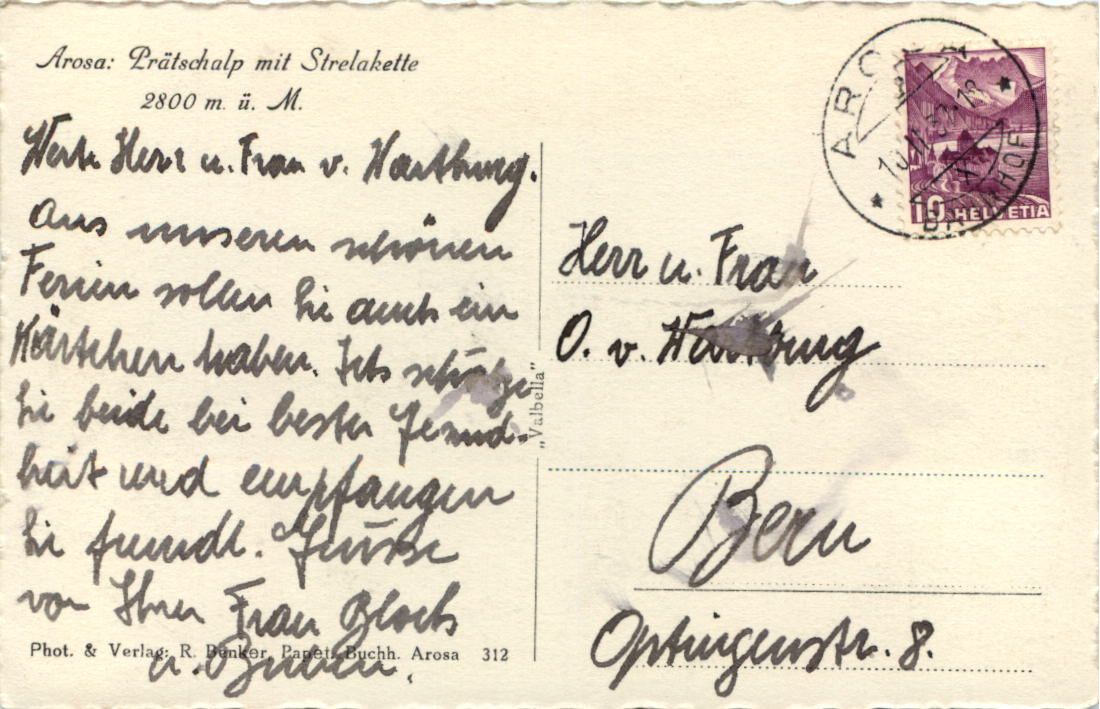 Arosa: Prätschalp mit Strelakette
2800 m. ü. M.
Werte Herr u. Frau v. Wartburg.
Aus unseren schönen
Ferien sollen Sie auch ein
Kärtchen haben. Ich
Sie beide bei bester Gesund-
heit und empfangen
Sie freundl. Grüsse
von Ihrer Frau Bloch
u. Buben.
Phot. & Verlag: R. Benker, Papet. Buchh. Arosa 312
„Valbella"
AROSA
BAHNHOF
10 HELVETIA
Herr u. Frau
O. v. Wartburg
Bern
Optingenstr. 8.